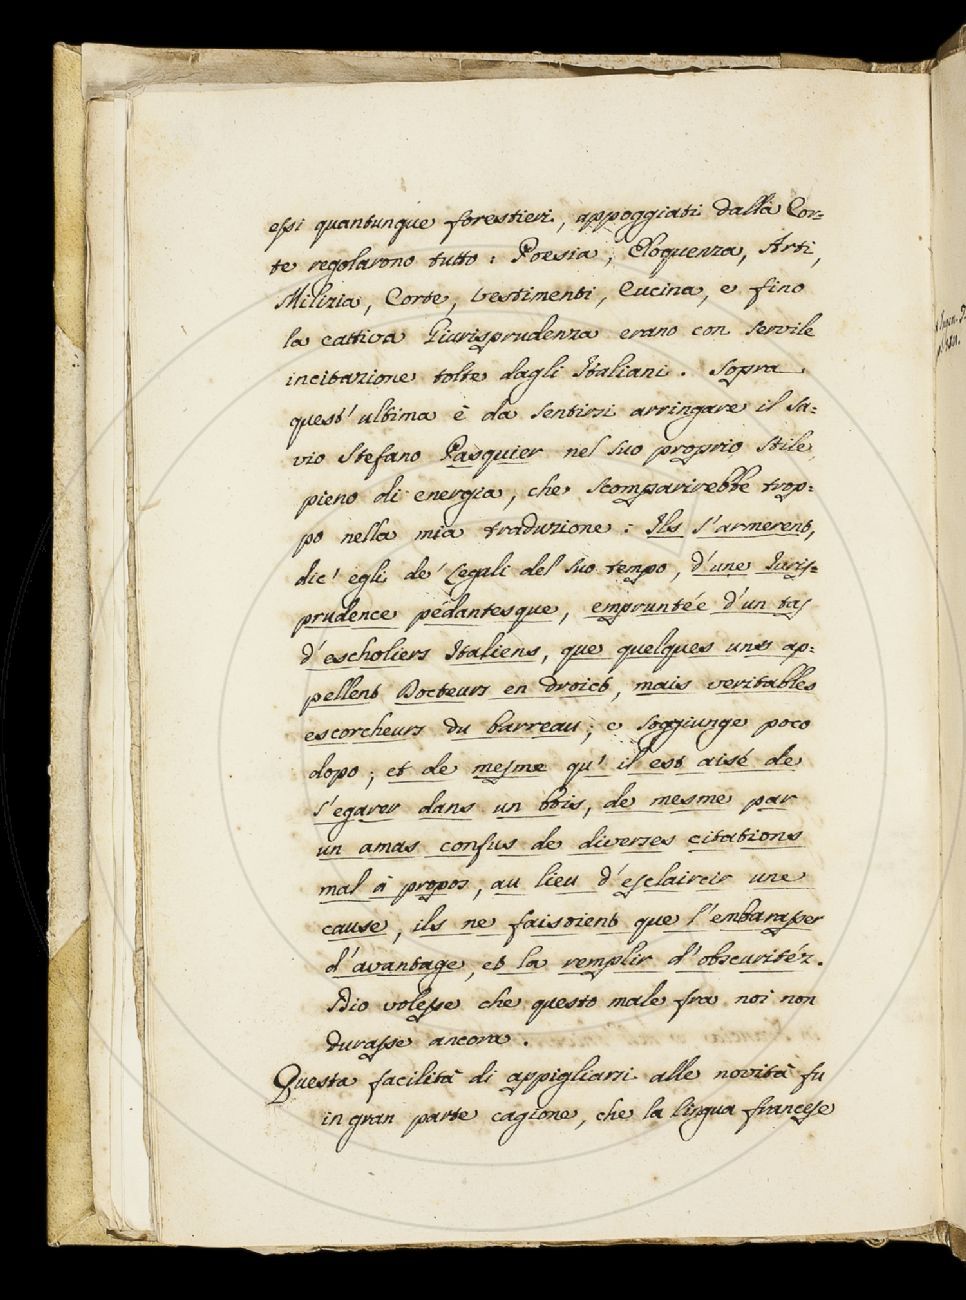 essi quantunque forestieri, appoggiati dalla Cor=
te regolarono tutto: Poesia, Eloquenza, Arti,
Milizia, Corte, vestimenti, Cucina, e fino
la cattiva Giurisprudenza erano con servile
incitazione tolte dagli Italiani. Sopra
quest' ultima è da sentirsi arringare il sa=
vio Stefano Pasquier nel suo proprio stile
pieno di energia, che scomparirebbe trop=
po nella mia traduzione: Ils s'armerent,
dic' egli de' Legali del suo tempo, d'une Juris=
prudence pédantesque, empruntée d'un tas
d'escholiers Italiens, que quelques uns ap=
pellent Docteurs en droict, mais veritables
escorcheurs du barreau; e soggiunge poco
dopo; et de mesme qu' il est aisé de
s'egarer dans un bois, de mesme par
un amas confus de diverses citations
mal à propos, au lieu d'esclaircir une
cause, ils ne faisoient que l'embarasser
d'avantage, et la remplir d'obscuritéz.
Dio volesse che questo male fra noi non
durasse ancora.
Questa facilità di appigliarsi alle novità fu
in gran parte cagione, che la lingua francese